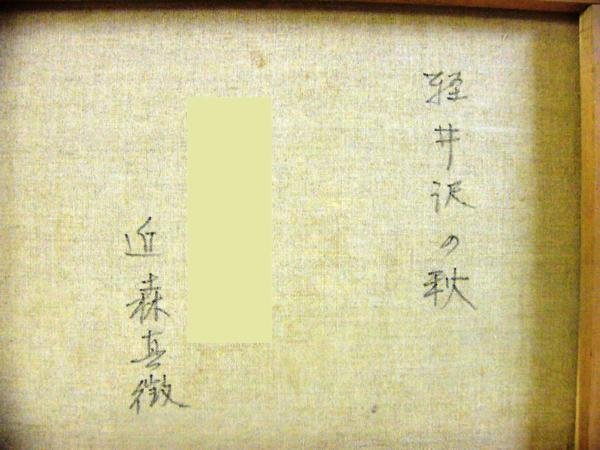 軽井沢の秋
近森真徴